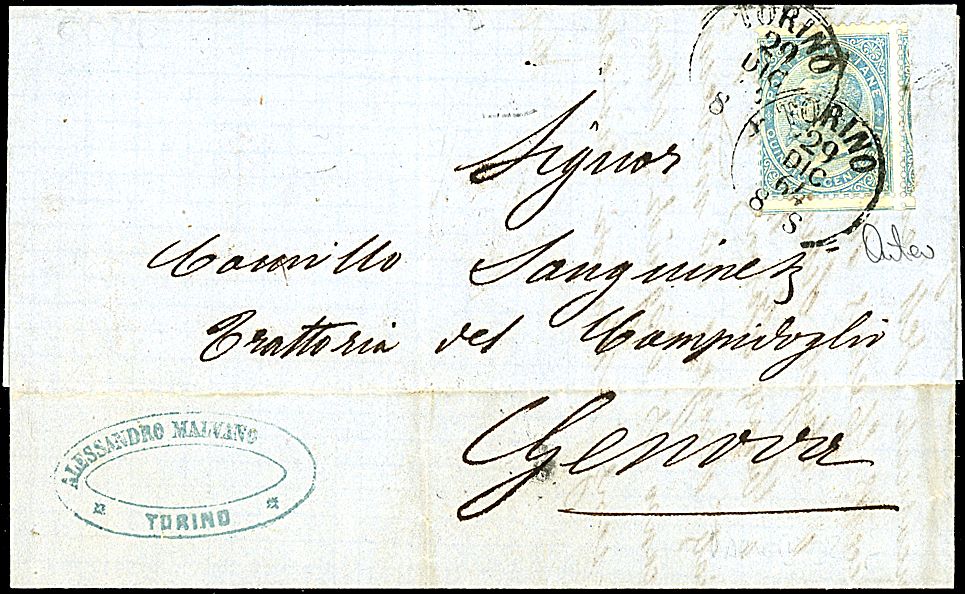 TORINO
29
DIC
8
TORINO
29
DIC
64
8 S
QUIN CEN
Signor
Sanguinez
Trattoria del Campidoglio
Genova
ALESSANDRO MALVANO
TORINO